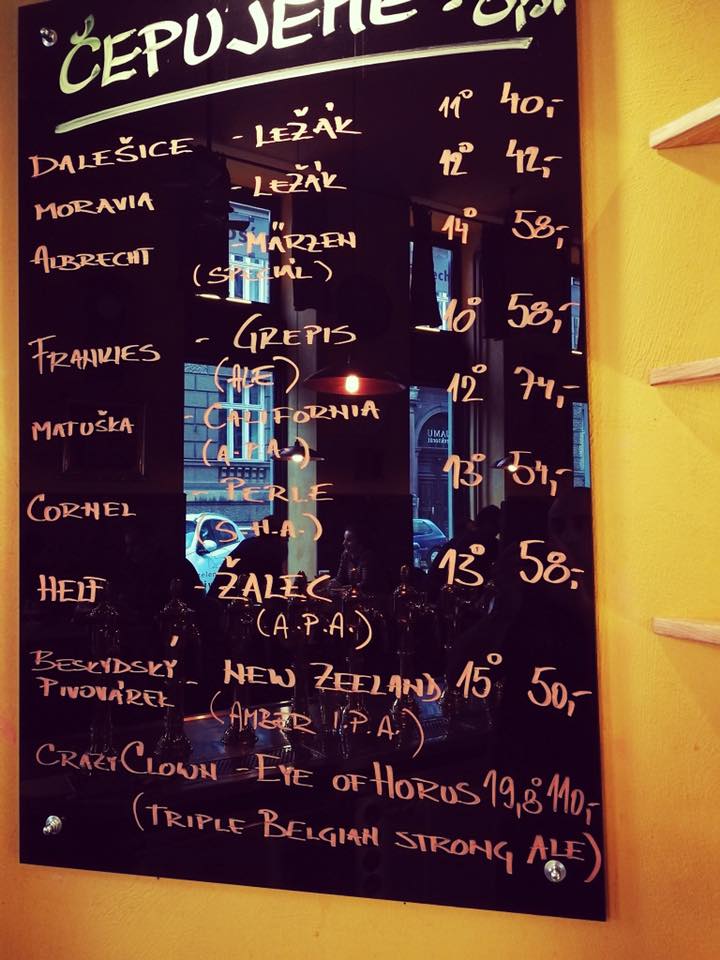 ČEPUJEME -
DALEŠICE - LEŽÁK 11° 40,-
MORAVIA - LEŽÁK 12° 42,-
ALBRECHT - MÄRZEN 14° 58,-
(SPECIÁL)
FRANKIES - GREPIS 10° 58,-
(ALE)
MATUŠKA - CALIFORNIA 12° 74,-
(A.P.A.)
CORNEL - PERLE 13° 54,-
(S.H.A.)
HELF - ŽALEC 13° 58,-
(A.P.A.)
BESKYDSKÝ - NEW ZEELAND 15° 50,-
PIVOVÁREK (AMBER I.P.A.)
CRAZY CLOWN - EYE OF HORUS 19,8° 110,-
(TRIPLE BELGIAN STRONG ALE)